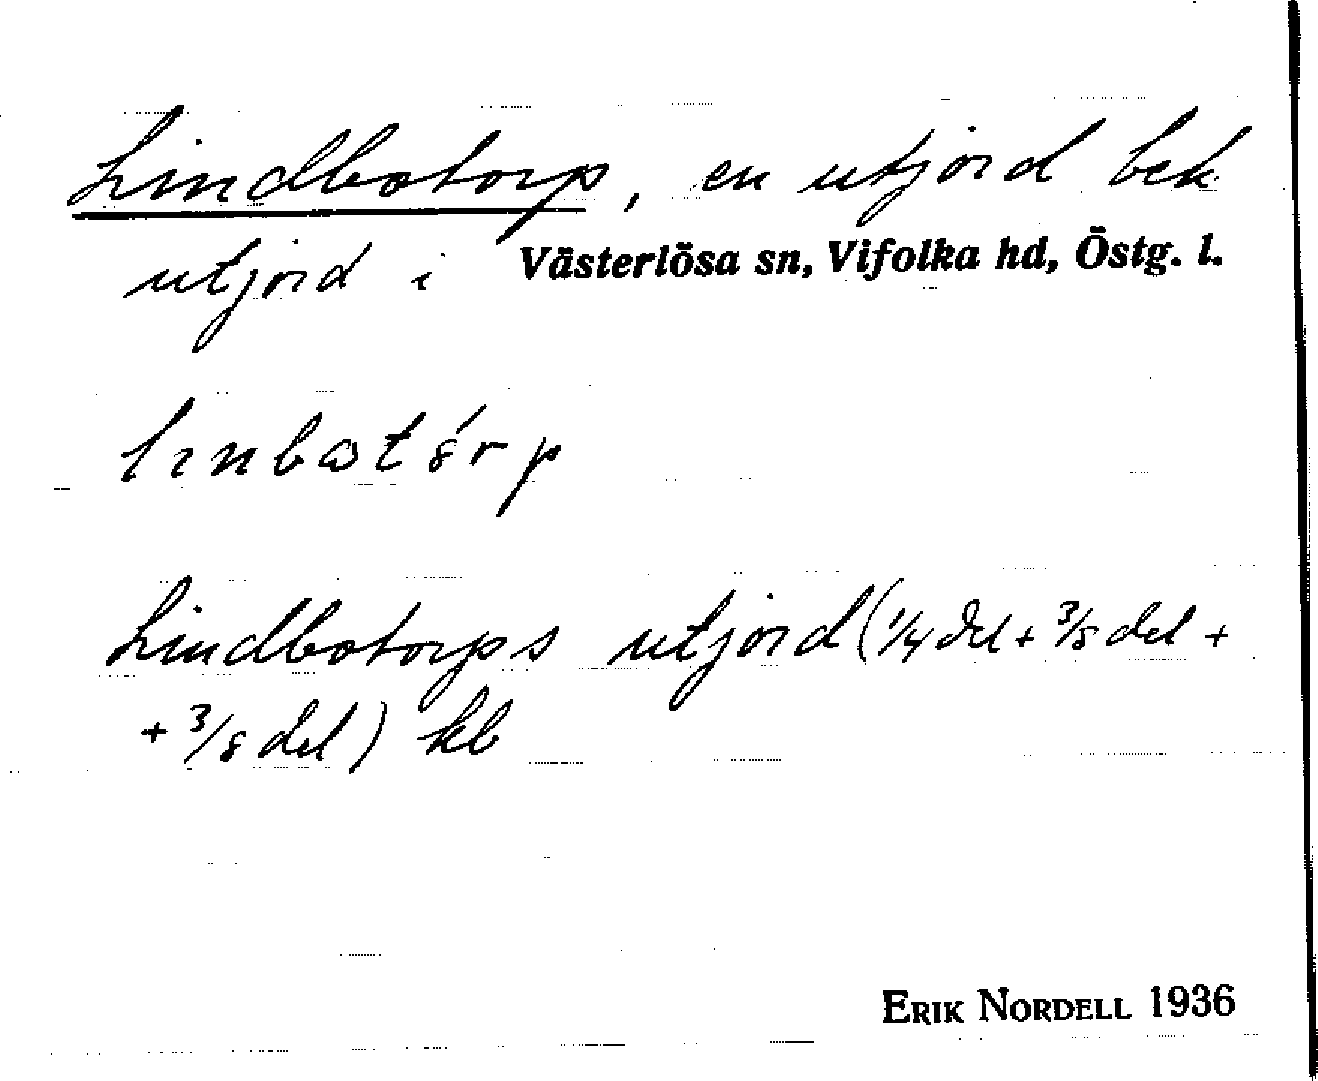 Lindbotorp, en utjord bek
utjord i Västerlösa sn, Vifolka hd, Östg. l.
Lindbotorps utjord (1/4 del + 3/8 del +
+ 3/8 del) kb
ERIK NORDELL 1936